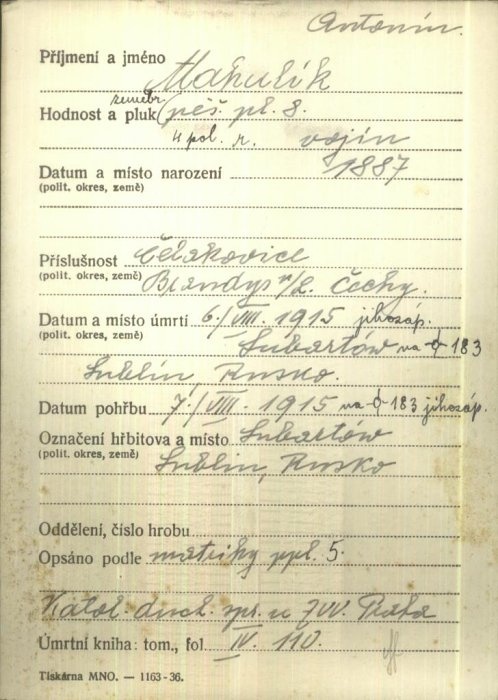 Antonín.
Příjmení a jméno Mahulík
zeměbr.
Hodnost a pluk (pěš. pl. 8.
4 pol. n. vojín
Datum a místo narození 1887
(polit. okres, země)
Příslušnost Čelakovice
(polit. okres, země) Brandýs n/L. Čechy.
Datum a místo úmrtí 6./VIII. 1915 jihozáp.
(polit. okres, země) Lubartów na 183
Lublin, Rusko.
Datum pohřbu 7./VIII. 1915 na 183 jihozáp.
Označení hřbitova a místo Lubartów
(polit. okres, země) Lublin, Rusko
Oddělení, číslo hrobu
Opsáno podle matriky ppl. 5.
Katol. duch. spr. u ZVV. Praha
Úmrtní kniha: tom., fol. IV. 110.
Tiskárna MNO. — 1163-36.